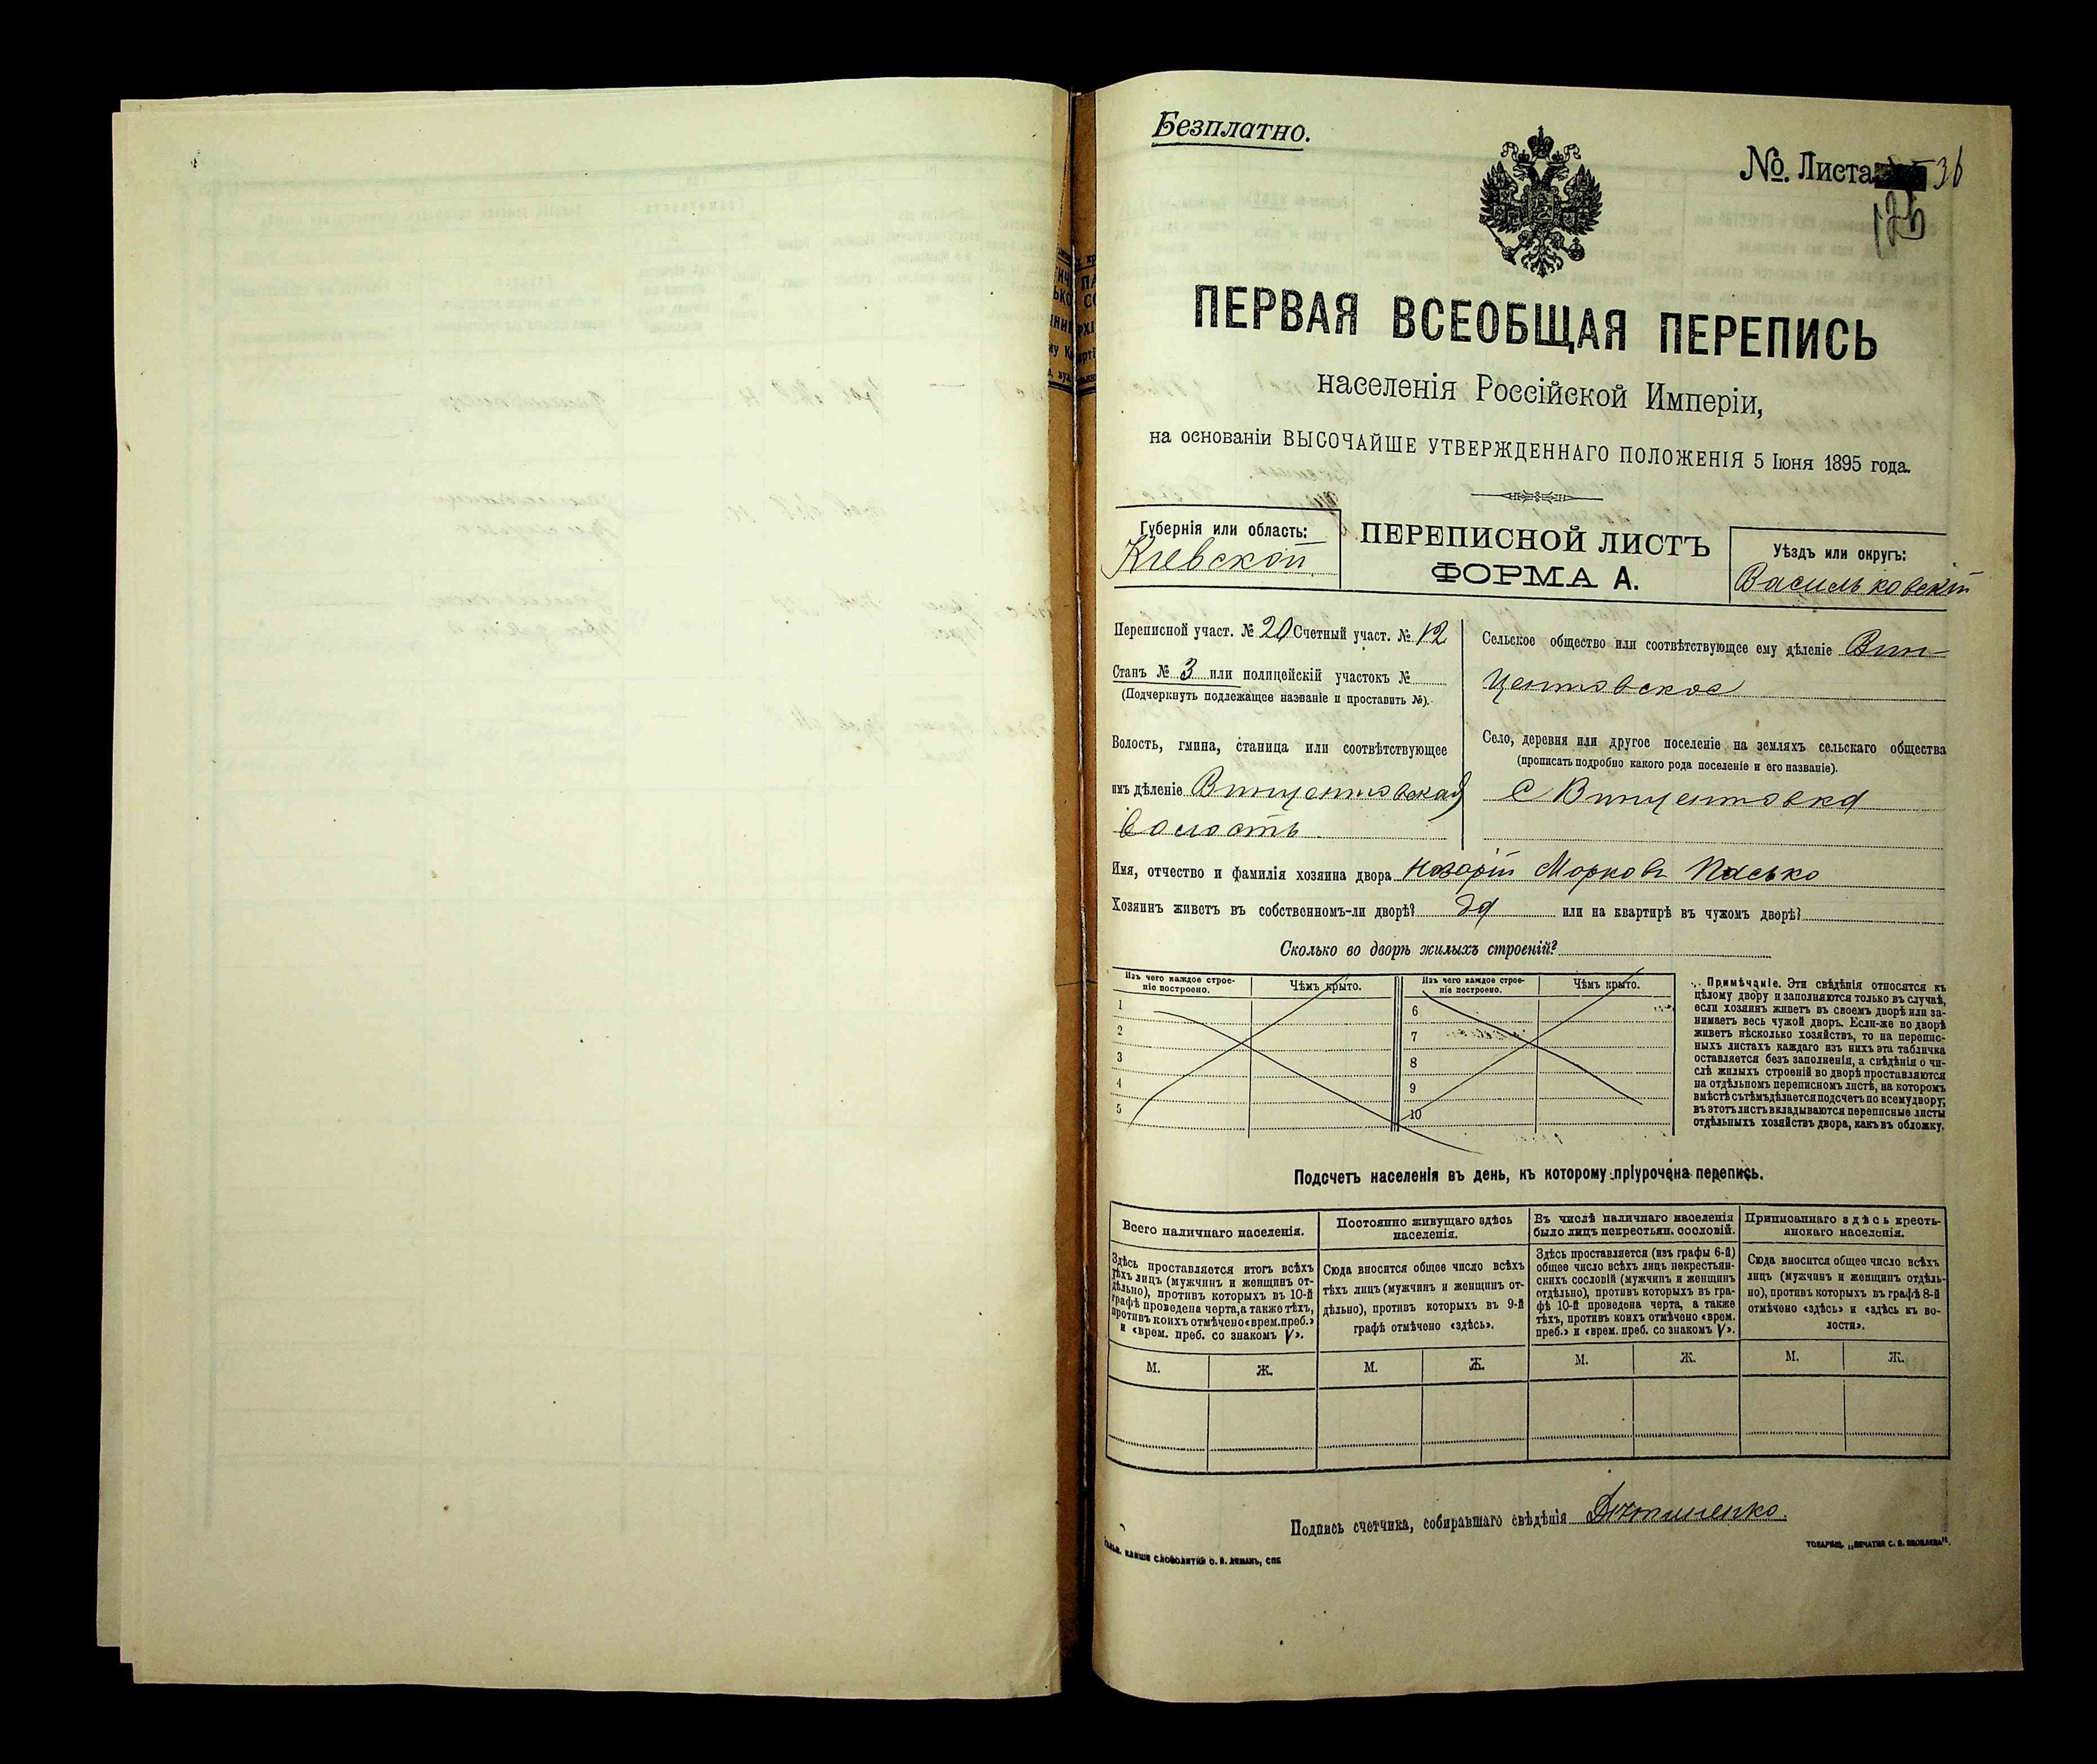 Безплатно.
№. Листа 36
126
ПЕРВАЯ ВСЕОБЩАЯ ПЕРЕПИСЬ
населенія Россійской Имперіи,
на основаніи ВЫСОЧАЙШЕ УТВЕРЖДЕННАГО ПОЛОЖЕНІЯ 5 Іюня 1895 года.
Губернія или область:
Кіевской
ПЕРЕПИСНОЙ ЛИСТЪ
ФОРМА А.
Уѣздъ или округъ:
Васильковскій
Переписной участ. № 20 Счетный участ. № 12
Станъ № 3 или полицейскій участокъ №
(Подчеркнуть подлежащее названіе и проставить №).
Волость, гмина, станица или соотвѣтствующее
имъ дѣленіе Винцентовская
Волость
Сельское общество или соотвѣтствующее ему дѣленіе Вин-
центовское
Село, деревня или другое поселеніе на земляхъ сельскаго общества
(прописать подробно какого рода поселеніе и его названіе).
С Винцентовка
Имя, отчество и фамилія хозяина двора Назарій Марковъ Пасько
Хозяинъ живетъ въ собственномъ-ли дворѣ? да или на квартирѣ въ чужомъ дворѣ?
Сколько во дворѣ жилыхъ строеній?
Изъ чего каждое строе-
ніе построено.
Чѣмъ крыто.
Изъ чего каждое строе-
ніе построено.
Чѣмъ крыто.
1
2
3
4
5
6
7
8
9
10
Примѣчаніе. Эти свѣдѣнія относятся къ
цѣлому двору и заполняются только въ случаѣ,
если хозяинъ живетъ въ своемъ дворѣ или за-
нимаетъ весь чужой дворъ. Если-же во дворѣ
живетъ нѣсколько хозяйствъ, то на перепис-
ныхъ листахъ каждаго изъ нихъ эта табличка
оставляется безъ заполненія, а свѣдѣнія о чи-
слѣ жилыхъ строеній во дворѣ проставляются
на отдѣльномъ переписномъ листѣ, на которомъ
вмѣстѣ съ тѣмъ дѣлается подсчетъ по всему двору;
въ этотъ листъ вкладываются переписные листы
отдѣльныхъ хозяйствъ двора, какъ въ обложку.
Подсчетъ населенія въ день, къ которому пріурочена перепись.
Всего наличнаго населенія.
Здѣсь проставляется итогъ всѣхъ
тѣхъ лицъ (мужчинъ и женщинъ от-
дѣльно), противъ которыхъ въ 10-й
графѣ проведена черта, а также тѣхъ,
противъ коихъ отмѣчено «врем. преб.»
и «врем. преб. со знакомъ V».
Постоянно живущаго здѣсь
населенія.
Сюда вносится общее число всѣхъ
тѣхъ лицъ (мужчинъ и женщинъ от-
дѣльно), противъ которыхъ въ 9-й
графѣ отмѣчено «здѣсь».
Въ числѣ наличнаго населенія
было лицъ некрестьян. сословій.
Здѣсь проставляется (изъ графы 6-й)
общее число всѣхъ лицъ некрестьян-
скихъ сословій (мужчинъ и женщинъ
отдѣльно), противъ которыхъ въ гра-
фѣ 10-й проведена черта, а также
тѣхъ, противъ коихъ отмѣчено «врем.
преб.» и «врем. преб. со знакомъ V».
Приписаннаго здѣсь кресть-
янскаго населенія.
Сюда вносится общее число всѣхъ
лицъ (мужчинъ и женщинъ отдѣль-
но), противъ которыхъ въ графѣ 8-й
отмѣчено «здѣсь» и «здѣсь къ во-
лости».
М. Ж. М. Ж. М. Ж. М. Ж.
Подпись счетчика, собиравшаго свѣдѣнія
КЛИШЕ СЛОВОЛИТНИ О. И. ЛЕМАНЪ, СПБ
ТОВАРИЩ. „ПЕЧАТНЯ С. П. ЯКОВЛЕВА".